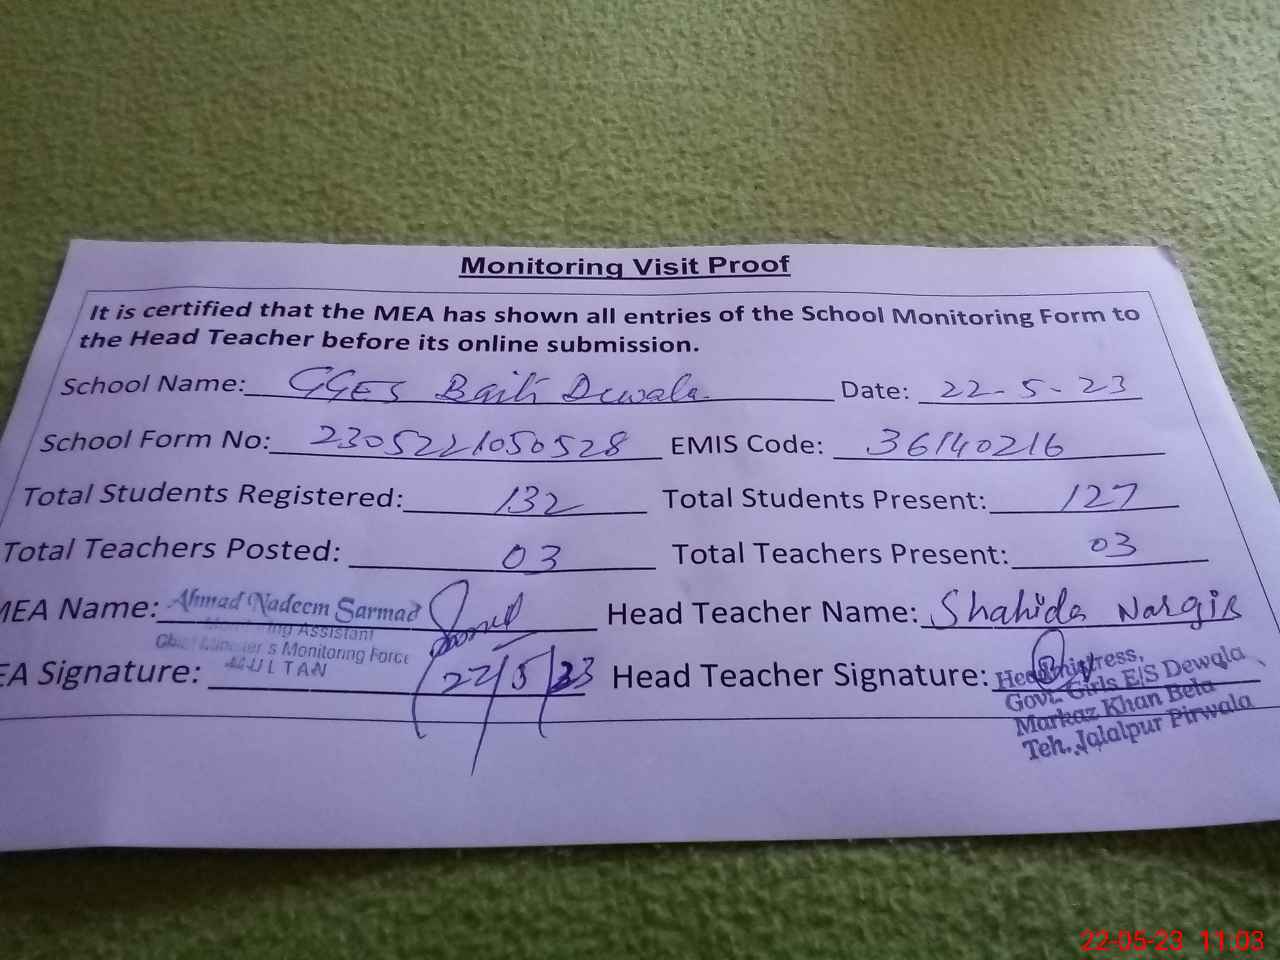 Monitoring Visit Proof
It is certified that the MEA has shown all entries of the School Monitoring Form to
the Head Teacher before its online submission.
School Name: GGES Baiti Dewala Date: 22-5-23
School Form No: 2305221050528 EMIS Code: 36140216
Total Students Registered: 132 Total Students Present: 127
Total Teachers Posted: 03 Total Teachers Present: 03
MEA Name: Ahmad Nadeem Sarmad Head Teacher Name: Shahida Nargis
Monitoring Assistant
Chief Minister's Monitoring Force
MULTAN
EA Signature: 22/5/23 Head Teacher Signature:
Headmistress,
Govt. Girls E/S Dewala
Markaz Khan Bela
Teh. Jalalpur Pirwala
22-05-23 11:03